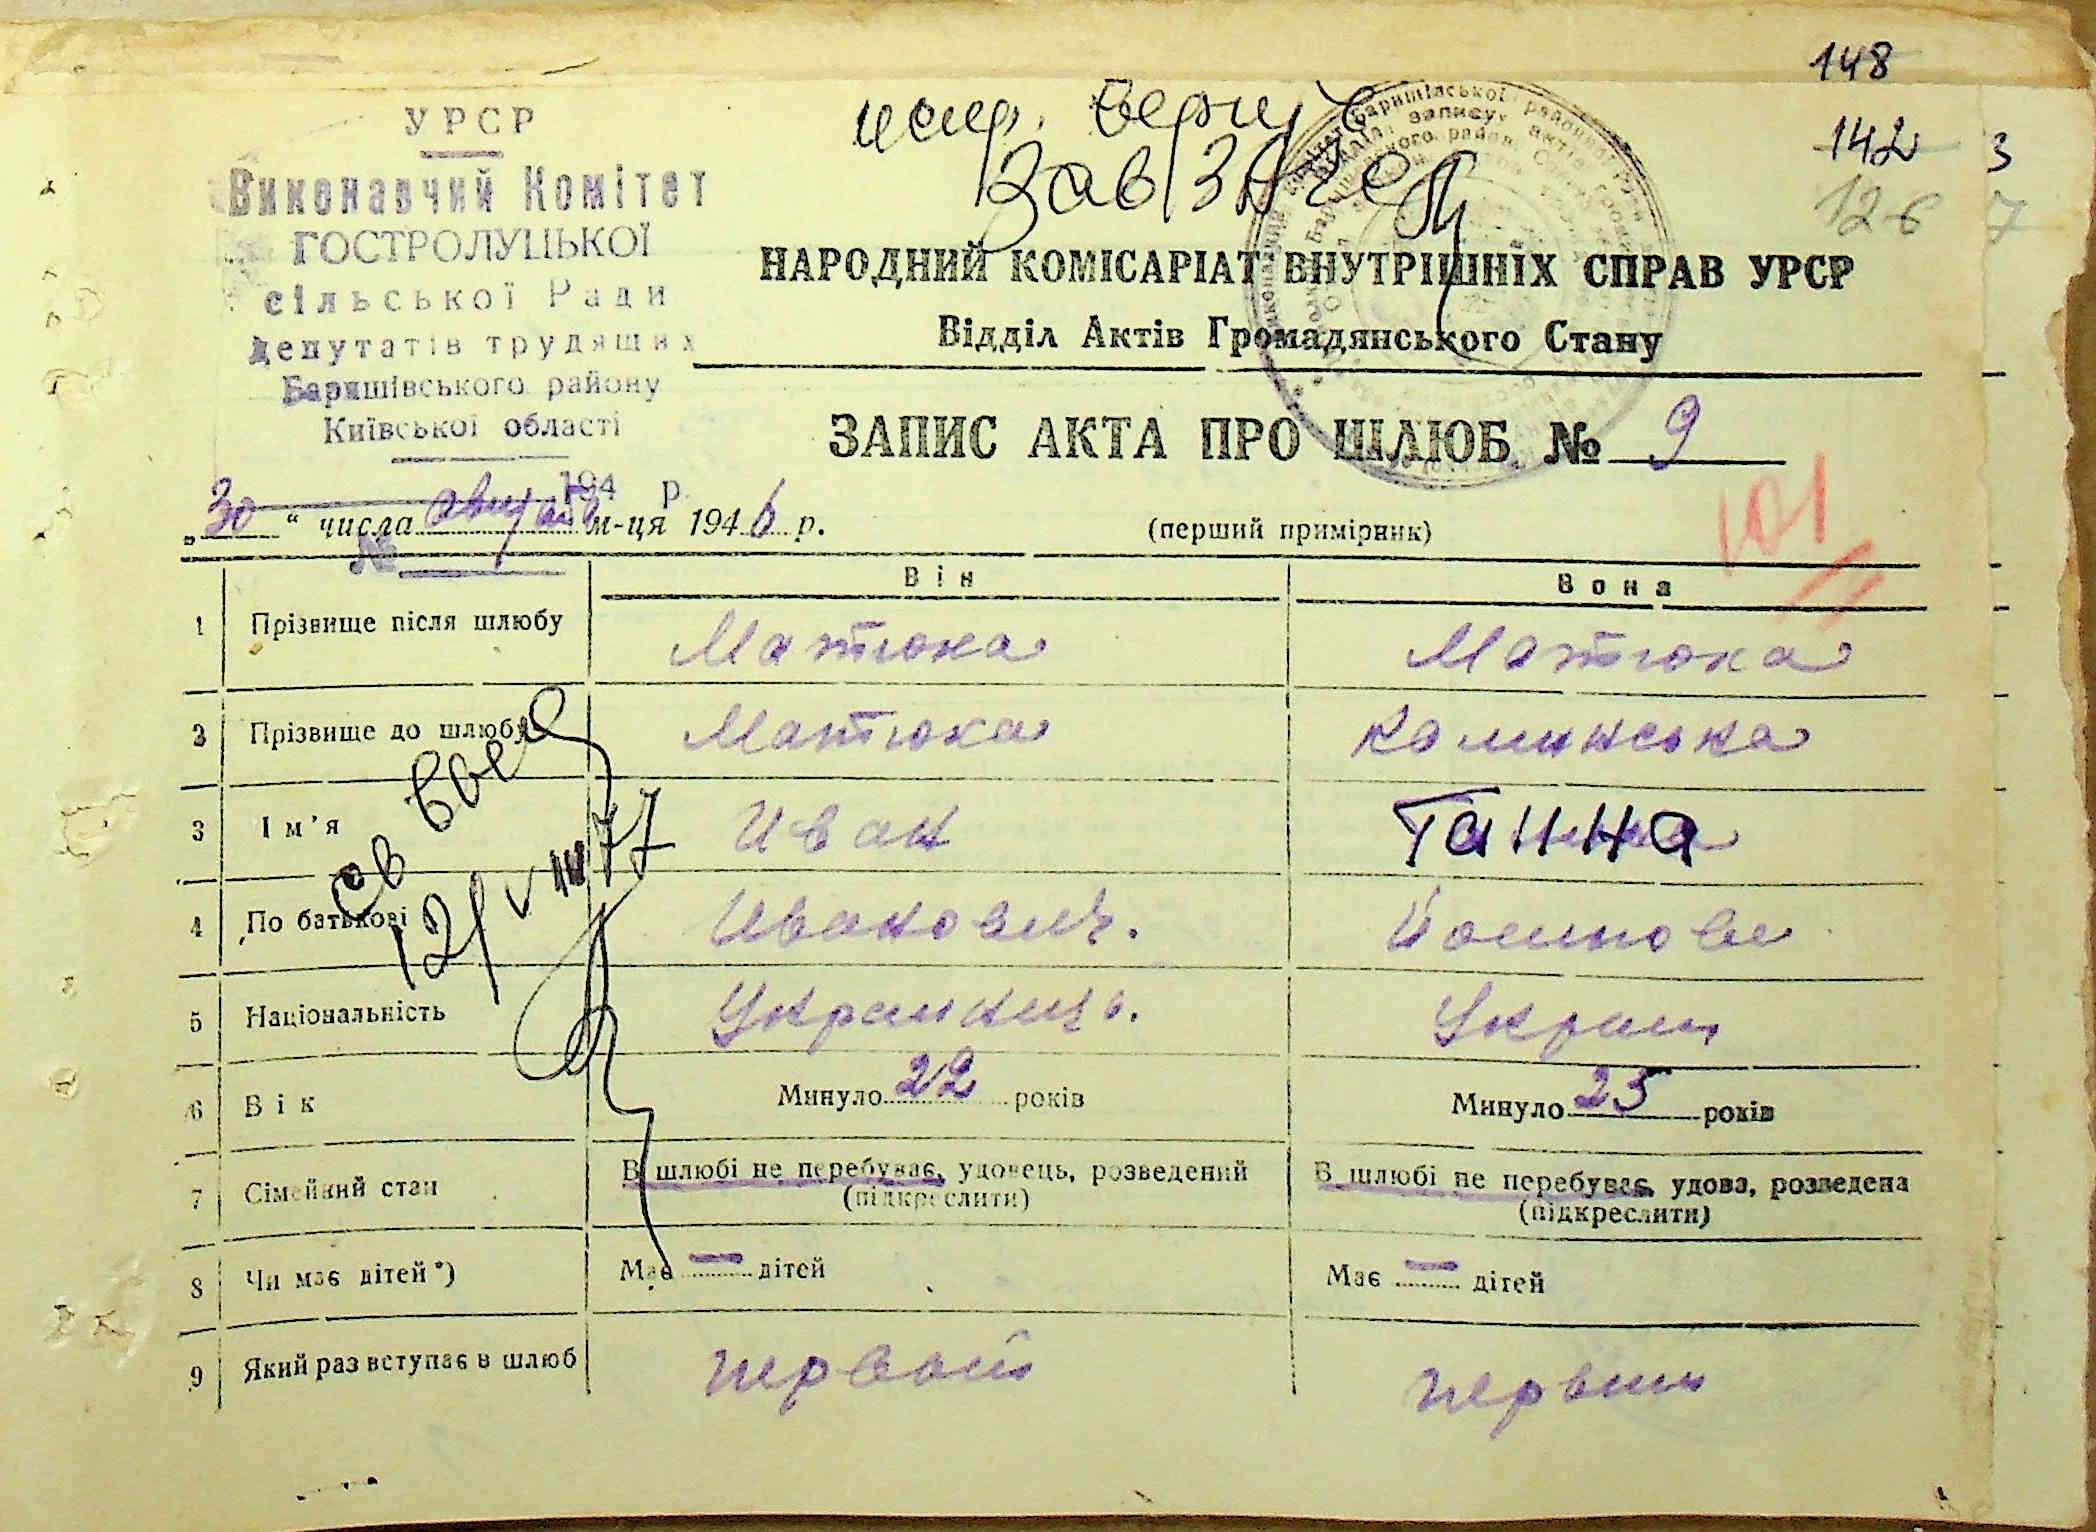 148
142 3
126 7
испр. верить
Зав ЗАГС
УРСР
Виконавчий Комітет
ГОСТРОЛУЦЬКОЇ
сільської Ради
депутатів трудящих
Баришівського району
Київської області
194 р.
№
НАРОДНИЙ КОМІСАРІАТ ВНУТРІШНІХ СПРАВ УРСР
Відділ Актів Громадянського Стану
ЗАПИС АКТА ПРО ШЛЮБ № 9
„30“ числа августа м-ця 1946 р.
(перший примірник)
101
Він Вона
1 Прізвище після шлюбу Матюха Матюха
2 Прізвище до шлюбу Матюха Каминська
3 Ім'я Иван Ганна
4 По батькові Иванович. Йосипове
5 Національність Украинець. Украин
6 Вік Минуло 22 років Минуло 25 років
7 Сімейний стан В шлюбі не перебуває, удовець, розведений (підкреслити) В шлюбі не перебуває, удова, розведена (підкреслити)
8 Чи має дітей*) Має — дітей Має — дітей
9 Який раз вступає в шлюб первый первый
св
12/VIII 77